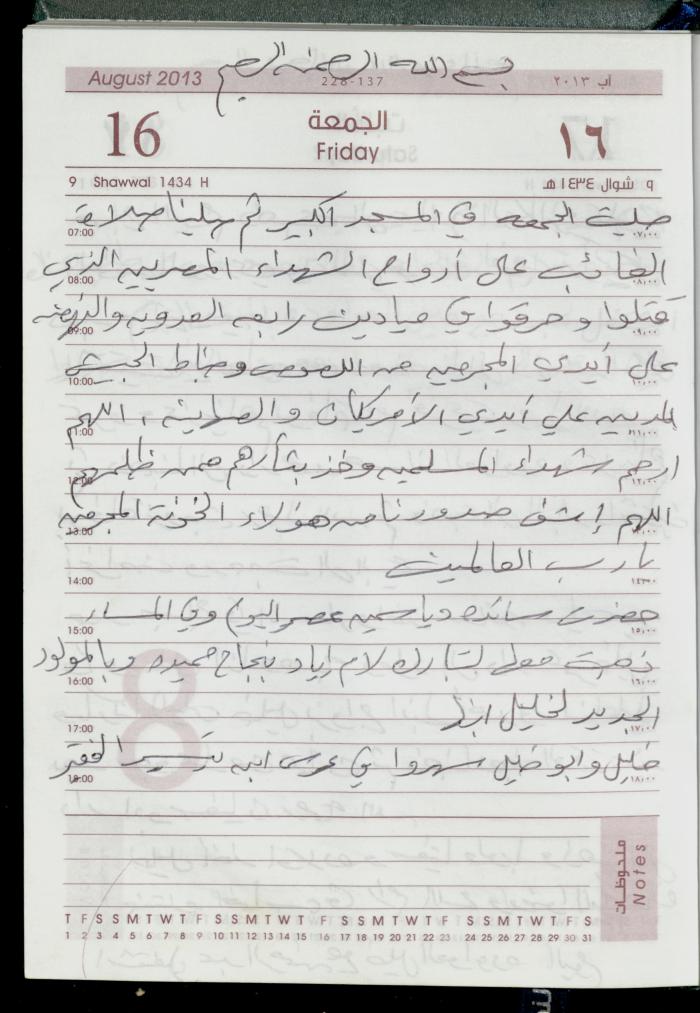 بسم الله الرحمن الرحيم
August 2013 228-137 آب ٢٠١٣
16 الجمعة ١٦
Friday
9 Shawwal 1434 H ٩ شوال ١٤٣٤ هـ
صليت الجمعه في المسجد الكبير ثم صلينا صلاة
07:00 ٠٧,٠٠
الغائب على أرواح الشهداء المصريين الذي
08:00 ٠٨,٠٠
قتلوا وحرقوا في ميادين رابعه العدويه والنهضه
09:00 ٠٩,٠٠
على أيدي المجرمين من اللصوص وضباط الجيش
10:00 ١٠,٠٠
المدربين على أيدي الأمريكان والصهاينة ، اللهم
11:00 ١١,٠٠
ارحم شهداء المسلمين وخذ بثأرهم ممن ظلمهم
12:00 ١٢,٠٠
اللهم إشف صدورنا من هؤلاء الخونة المجرمين
13:00 ١٣,٠٠
يا رب العالمين
14:00 ١٤,٠٠
حضرت سائده وياسمين عصر اليوم وفي المساء
15:00 ١٥,٠٠
ذهبت معها لتبارك لام اياد بنجاح حميده وبالمولود
16:00 ١٦,٠٠
الجديد لخليل ابنها
17:00 ١٧,٠٠
خليل وابو خليل سهروا في عرس ابن تيسير الفقر
18:00 ١٨,٠٠
ملحوظات
Notes
T F S S M T W T F S S M T W T F S S M T W T F S S M T W T F S
1 2 3 4 5 6 7 8 9 10 11 12 13 14 15 16 17 18 19 20 21 22 23 24 25 26 27 28 29 30 31
8